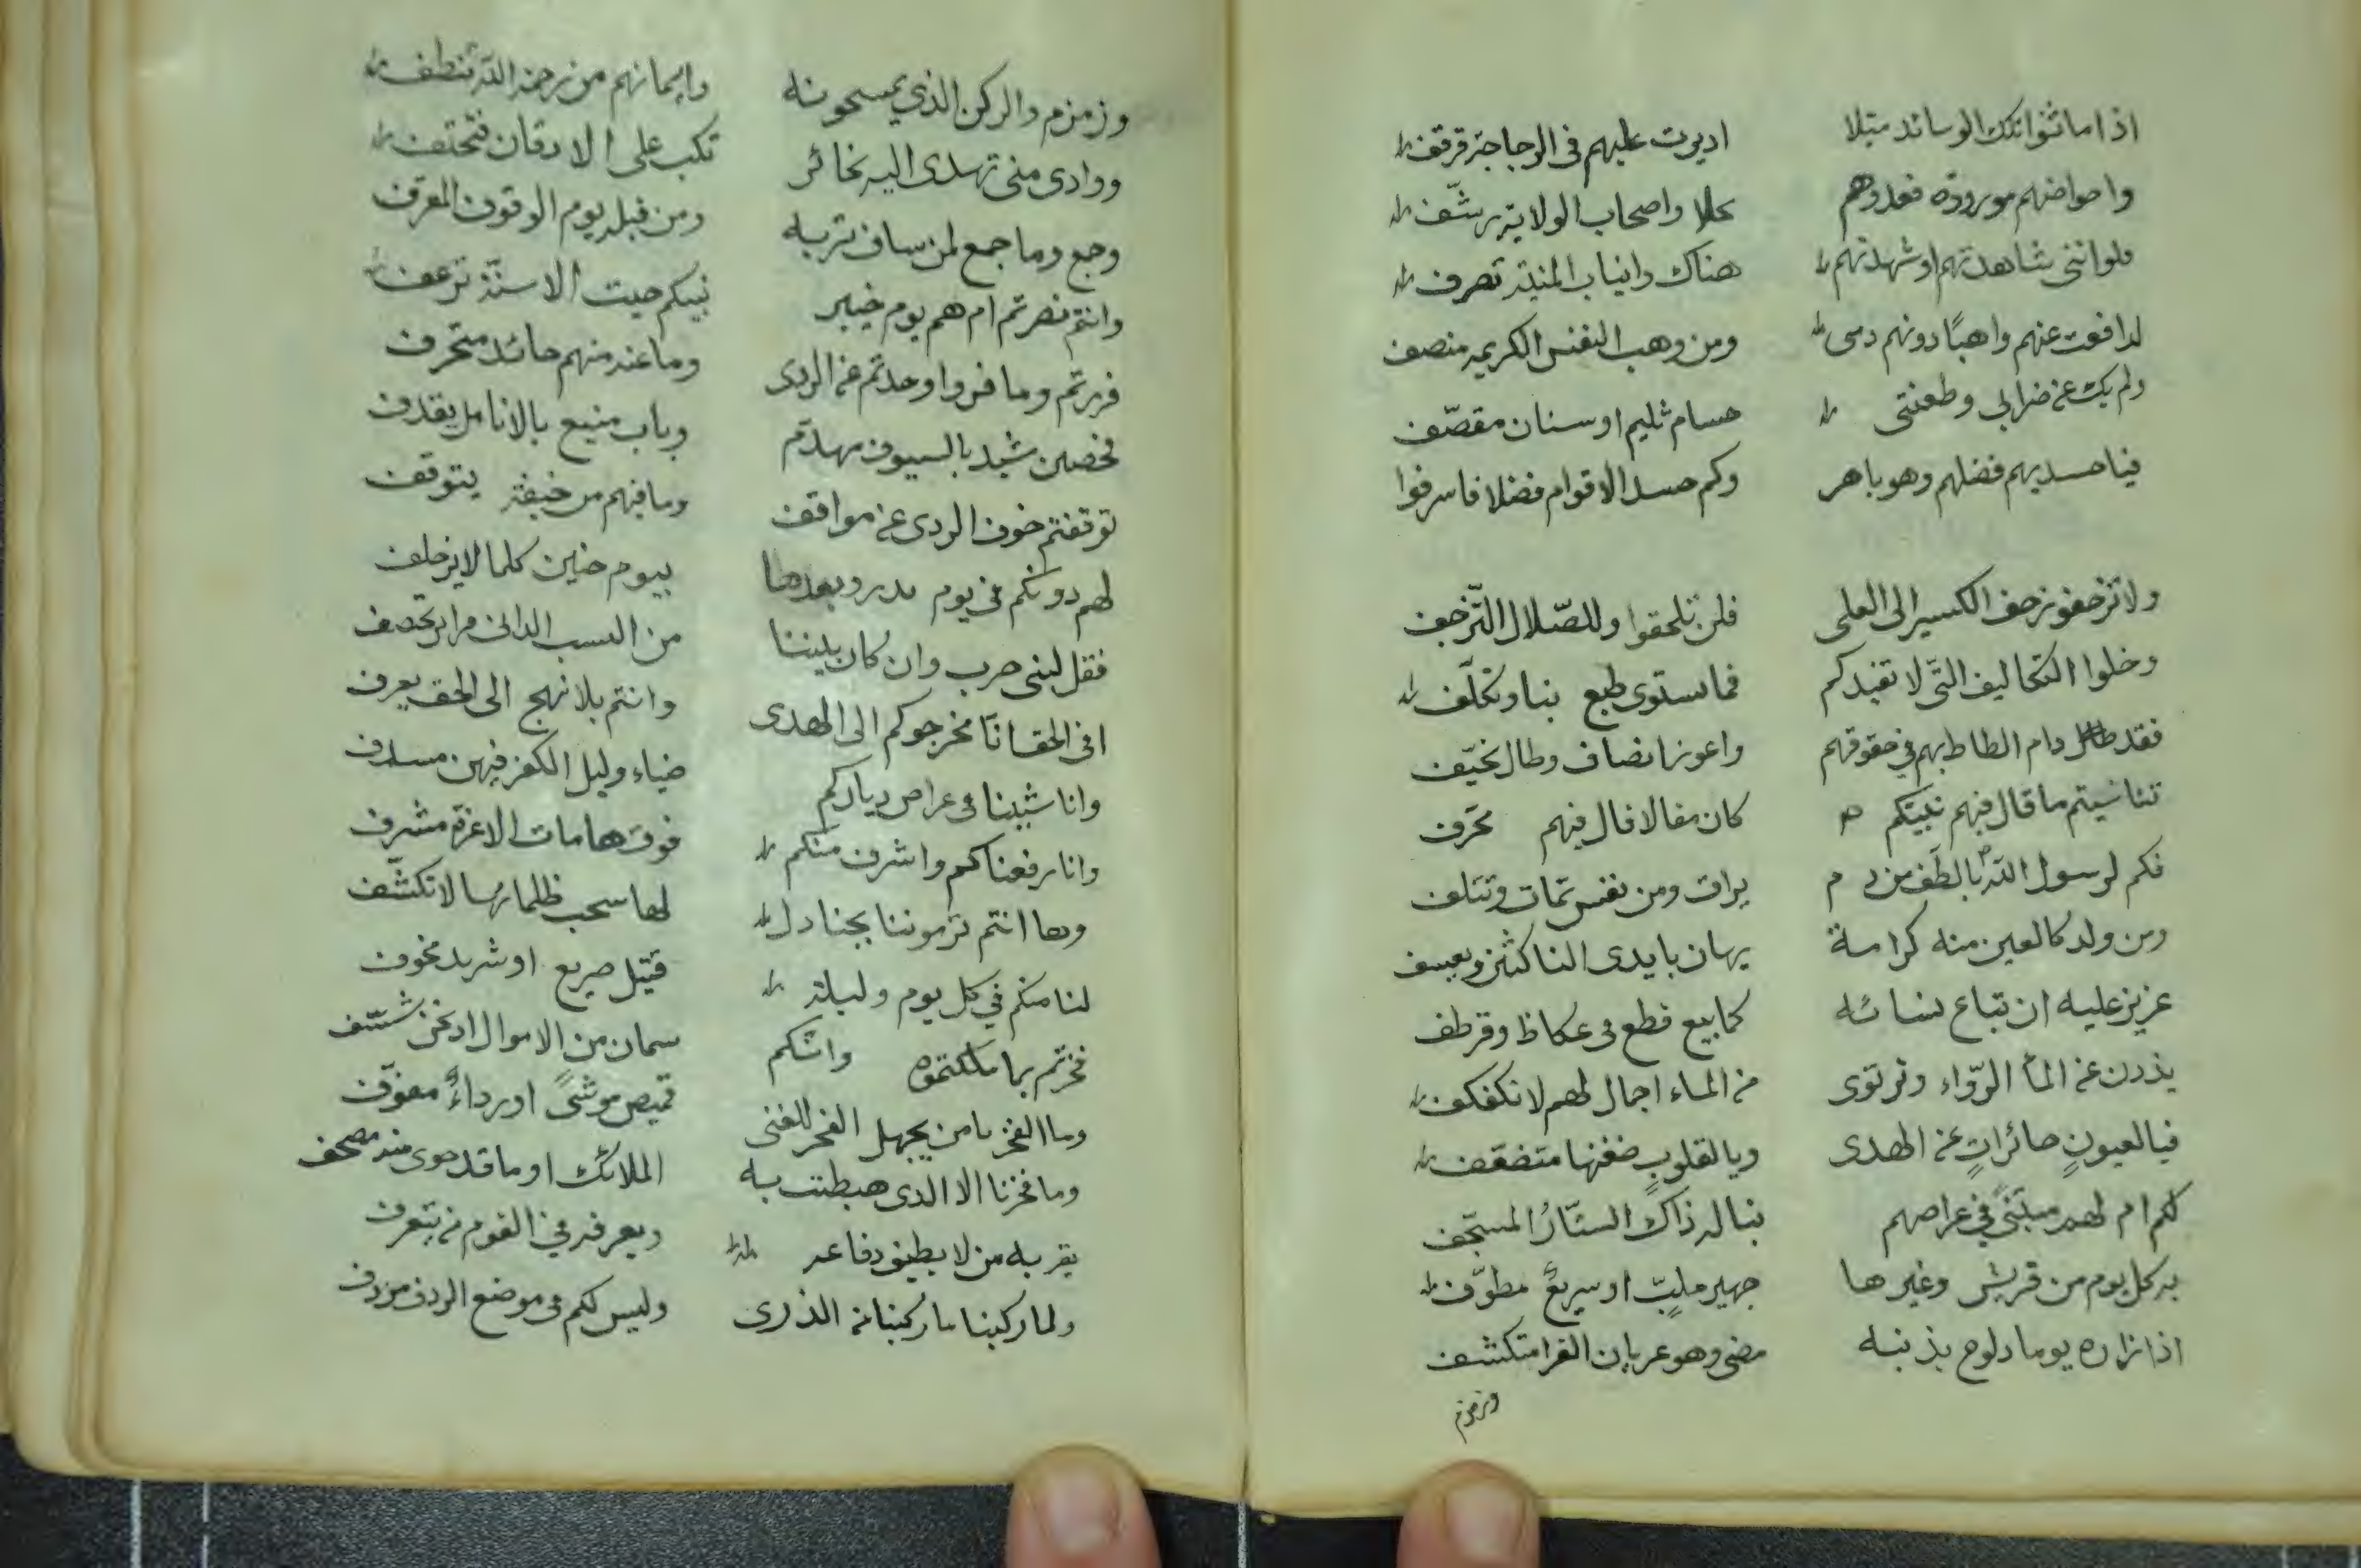 اذا ما ثنوا تلك الوسائد ميلا اديرت عليهم في الزجاجة قرقف
واحواضهم مورودة فعدوهم يحلا واصحاب الولاية يرشف
فلو انني شاهدتهم او شهدتهم هناك وانياب المنية تصرف
لدافعت عنهم واهبًا دونهم دمى ومن وهب النفس الكريمه منصف
ولم يك عن ضرابي وطعنتى حسام ثليم او سنان مقصّف
فيا حسديهم فضلهم وهو باهر وكم حسد الاقوام فضلا فاسرفوا
ولا تزحفو زحف الكسير الى العلى فلن تلحقوا وللصّلال التّزحف
وخلوا التكاليف التّى لا تفيدكم فما يستوى طبع بنا وتكلّف
فقد دام الطاط بهم في حقوقهم واعوز انصاف وطال تحيّف
تناسيتم ما قال فيهم نبيّكم كان مقالا قال فيهم محرّف
فكم لرسول الله بالطّف من دم يراق ومن نفس تمات وتتلف
ومن ولد كالعين منه كرامة يهان بايدى الناكثين ويعسف
عزيز عليه ان تباع نسائه كما بيع قطع في عكاظ وقرطف
يذدن عن الماء الرّواء وترتوى من الماء اجمال لهم لا تكفكف
فيا لعيونٍ حائراتٍ عن الهدى ويا لقلوبٍ ضغنها متضعّف
لكم ام لهم مبتنىً في عراصهم بنا له ذاك الستّارُ المسجّف
به كل يوم من قريش وغيرها جهير ملبّ او سريعٌ مطوّف
اذا زاره يوما دلوح بذنبه مضى وهو عريان الفرا متكشف
وزمزم
وزمزم والركن الذي يمسحونه وايمانهم من رحمة الله تنطف
ووادى منى تهدى اليه نحائر تكب على الاذقان فتحتف
وجمع وما جمع لمن ساف تربه ومن قبله يوم الوقوف المعرف
وانتم نصرتم ام هم يوم خيبر نبيكم حيث الاسنّة ترعف
فررتم وما فروا وحدتم عن الردى وما عنه منهم حائد متحرف
فحصن مشيد بالسيوف مهدّم وباب منيع بالانامل يقذف
توقفتم خوف الردى عن مواقف وما فيهم من خيفة يتوقف
لهم دونكم في يوم بدر وبعدها بيوم حنين كلما لا يزحلف
فقل لبنى حرب وان كان بيننا من النسب الدانى مرائر تحصف
افى الحق انّا مخرجوكم الى الهدى وانتم بلا نهج الى الحق يعرف
وانا شببنا في عراص دياركم ضياء وليل الكفر فيهن مسدف
وانا رفعناكم واشرف منكم فوق هامات الاعزة مشرف
وها انتم ترموننا بجنادل لها سحب ظلمائها لا تكشّف
لنا منكم في كل يوم وليلة قتيل صريع او شريد مخوف
فخرتم بما ملكتموه وانّكم سمان من الاموال اذ نحن شسّف
وما الفخر يا من يجهل الفخر للفتى قميص موشىً او رداءٌ مفوّف
وما فخرنا الا الذى هبطت به الملائك او ما قد حوى منه مصحف
يقر به من لا يطيق دفاعه ويعرفه في القوم من يتعرف
ولما ركبنا ما ركبنا من الذرى وليس لكم في موضع الردف مردف